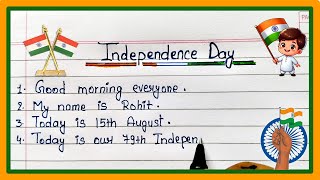 Independence Day
1. Good morning everyone.
2. My name is Rohit.
3. Today is 15th August.
4. Today is our 79th Indepen